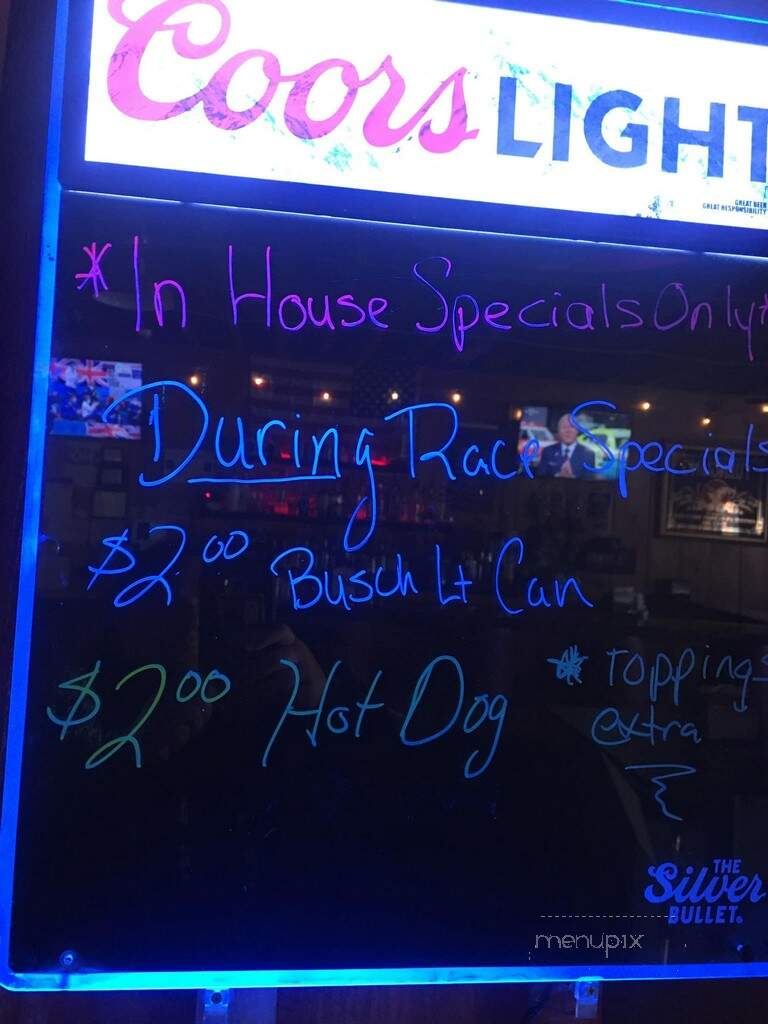 Coors LIGHT
GREAT BEER
GREAT RESPONSIBILITY
*In House Specials Only*
During Race Specials
$2.00 Busch Lt Can
$2.00 Hot Dog
* Toppings
extra
THE
Silver
BULLET.
menupix